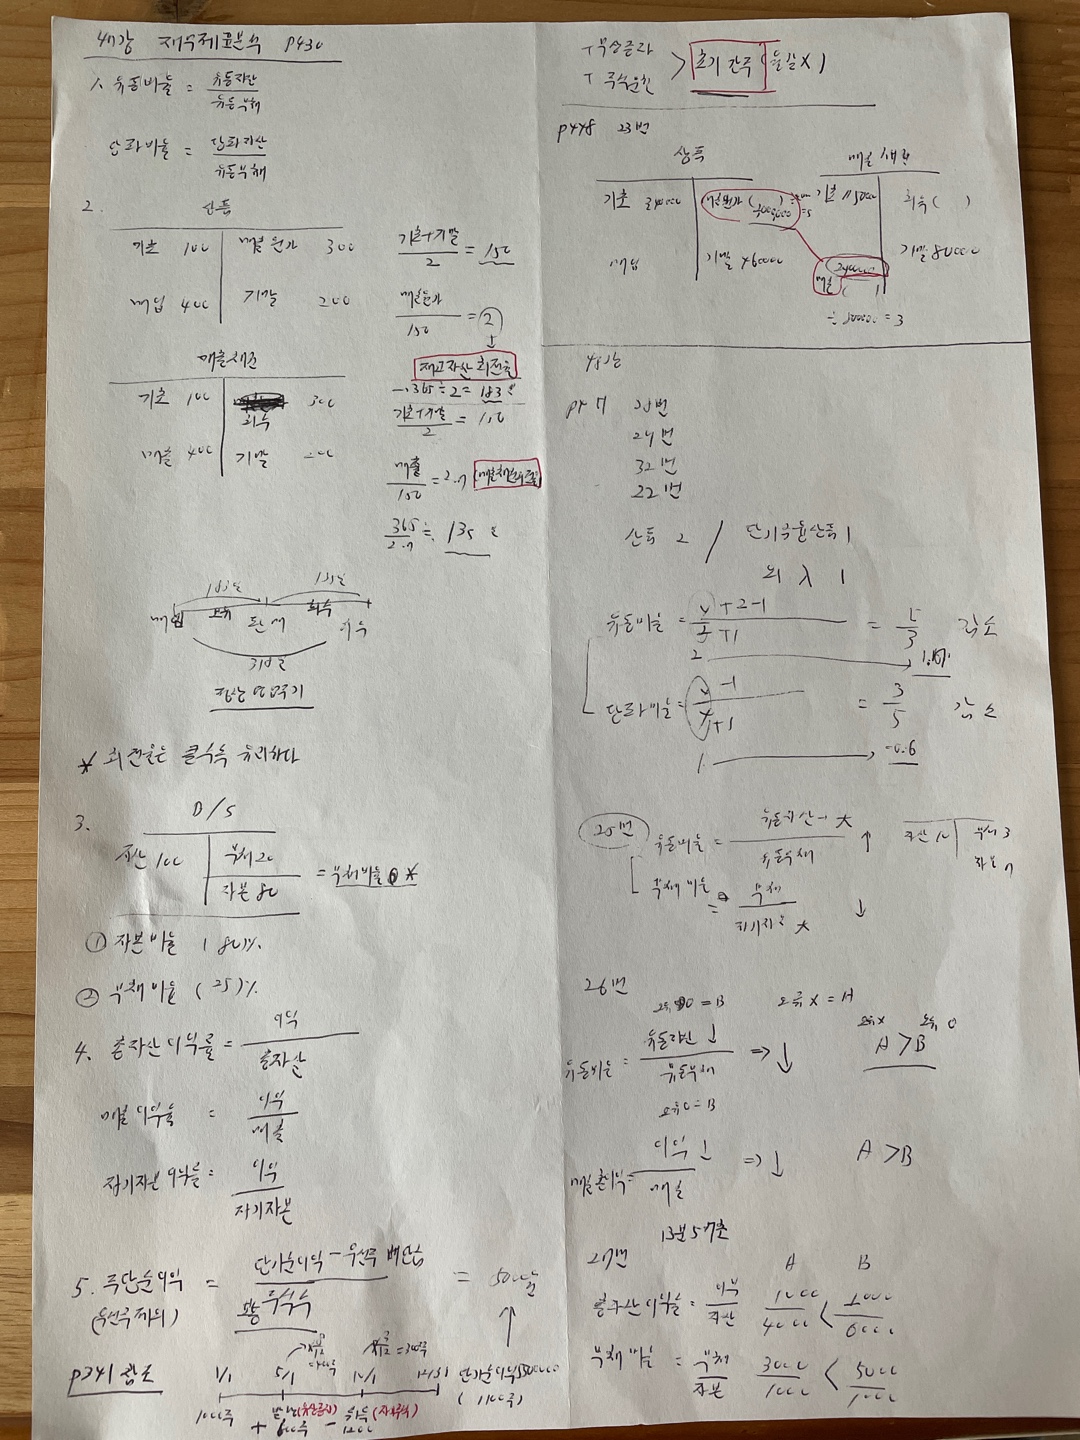 47강 재무제표분석 p430
1. 유동비율 = 유동자산 / 유동부채
당좌비율 = 당좌자산 / 유동부채
2. 상품
기초 100 매출원가 300
매입 400 기말 200
기초+기말 / 2 = 150
매출원가 / 150 = 2
재고자산 회전율
→ 365 ÷ 2 = 183일
매출채권
기초 100 회수 300
매출 400 기말 200
기초+기말 / 2 = 150
매출 / 150 = 2.7 (매출채권회전율)
365 / 2.7 ÷ 135일
183일 135일
매입 보유 판매 회수
318일
정상영업주기
* 회전율은 클수록 유리하다
3. B/S
자산 100 부채 20
자본 80
= 부채비율 *
① 자본비율 ( 80 )%
② 부채비율 ( 25 )%
4. 총자산이익률 = 이익 / 총자산
매출이익률 = 이익 / 매출
자기자본이익률 = 이익 / 자기자본
5. 주당순이익 = 당기순이익 - 우선주 배당금 / 보통주식수 = 500원
(우선주제외)
p341 참조
1/1 5/1 10/1 12/31 당기순이익 550000
1000주 + 600주 - 1200 (1100주)
(유상증자) (자기주식)
무상증자
주식배당
> 기초 간주
p448 23번
상품
기초 34000 매출원가 ( )
매입 기말 46000
매출채권
기초 15000 회수 ( )
매출 ( ) 기말 80000
240000
÷ 80000 = 3
48강
25번
24번
32번
22번
상품 2 / 단기금융상품 1
외 1
유동비율 = +2-1 / +1 = 5/3 감소
2 → 1.67
당좌비율 = -1 / +1 = 3/5 감소
1 → 0.6
25번
유동비율 = 유동자산 / 유동부채 ↑
부채비율 = 부채 / 자기자본 ↓
자산 10 부채 3
자본 7
26번
오류 O = B 오류 X = A
유동비율 = 유동자산 ↓ / 유동부채 => ↓
오류 X 오류 O
A > B
오류 O = B
매출총이익 = 이익 ↓ / 매출 => ↓ A > B
13분 57초
27번 A B
총자산이익률 = 이익 / 자산 1000/4000 < 2000/6000
부채비율 = 부채 / 자본 3000/1000 < 5000/1000